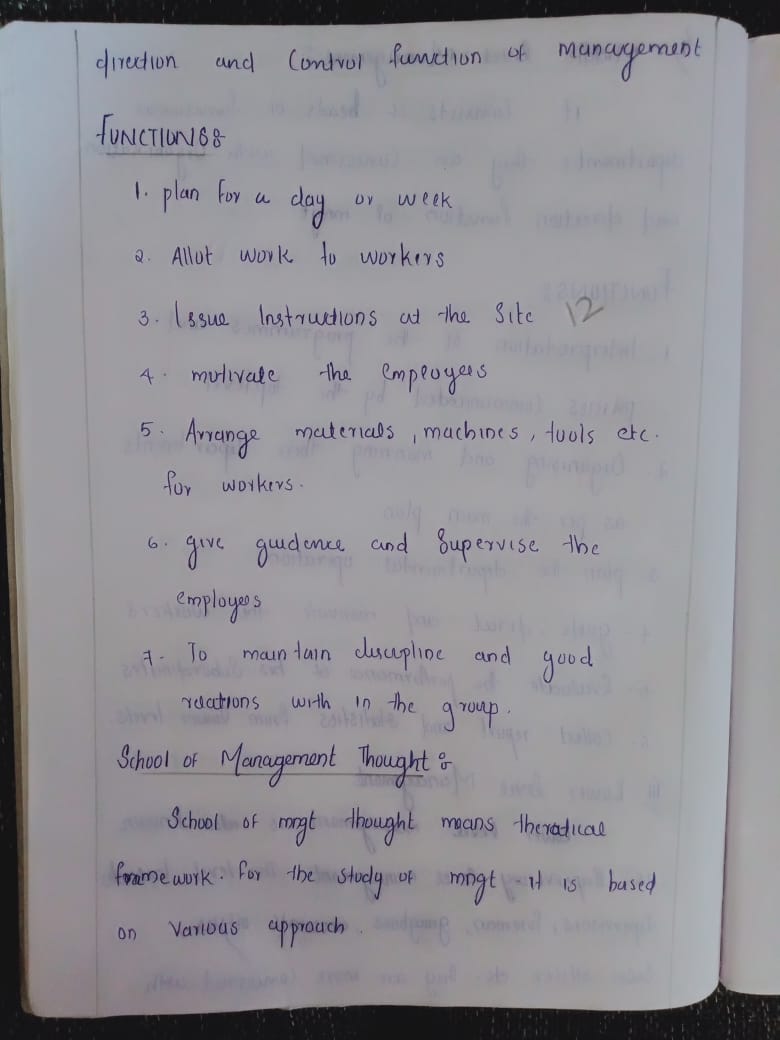 direction and Control function of management
FUNCTIONS:-
1. plan for a day or week
2. Allot work to workers
3. Issue Instructions at the Site 12
4. motivate the employees
5. Arrange materials, machines, tools etc.
for workers.
6. give guidence and Supervise the
employees
7- To maintain discipline and good
relations with in the group.
School of Management Thought :-
School of mngt thought means theradical
frame work. for the study of mngt - it is based
on Various approach.